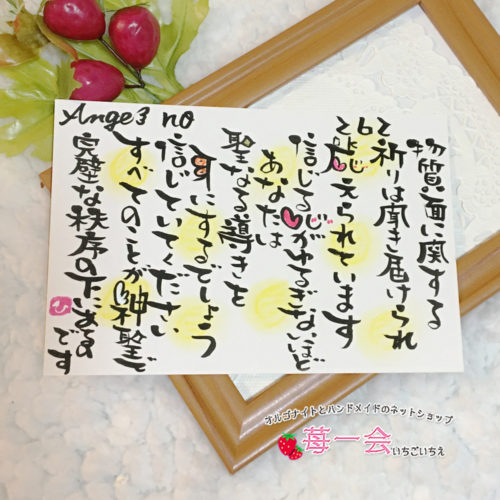 Ange3 no
262
物質面に関する
祈りは聞き届けられ
応えられています
信じる心がゆるぎないほど
あなたは
聖なる導きを
耳にするでしょう
信じていてください
すべてのことが神聖で
完璧な秩序の下にあるの
です
ひ
オルゴナイトとハンドメイドのネットショップ
苺一会いちごいちえ